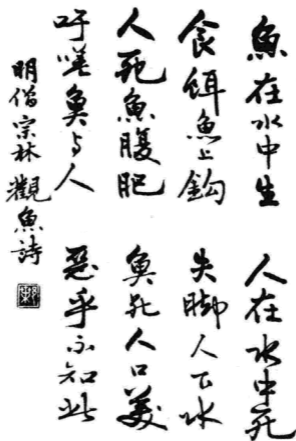 魚在水中生 人在水中死
食餌魚上鈎 失脚人下水
人死魚腹肥 魚死人口美
吁嗟魚与人 惡乎不知此
明僧宗林觀魚詩